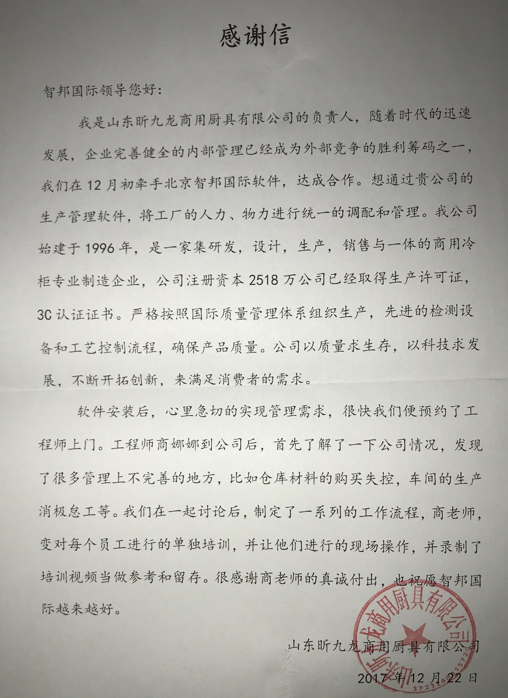 感谢信
智邦国际领导您好：
我是山东昕九龙商用厨具有限公司的负责人，随着时代的迅速
发展，企业完善健全的内部管理已经成为外部竞争的胜利筹码之一，
我们在12月初牵手北京智邦国际软件，达成合作。想通过贵公司的
生产管理软件，将工厂的人力、物力进行统一的调配和管理。我公司
始建于1996年，是一家集研发，设计，生产，销售与一体的商用冷
柜专业制造企业，公司注册资本2518万公司已经取得生产许可证，
3C认证证书。严格按照国际质量管理体系组织生产，先进的检测设
备和工艺控制流程，确保产品质量。公司以质量求生存，以科技求发
展，不断开拓创新，来满足消费者的需求。
软件安装后，心里急切的实现管理需求，很快我们便预约了工
程师上门。工程师商娜娜到公司后，首先了解了一下公司情况，发现
了很多管理上不完善的地方，比如仓库材料的购买失控，车间的生产
消极怠工等。我们在一起讨论后，制定了一系列的工作流程，商老师，
变对每个员工进行的单独培训，并让他们进行的现场操作，并录制了
培训视频当做参考和留存。很感谢商老师的真诚付出，也祝愿智邦国
际越来越好。
山东昕九龙商用厨具有限公司
2017年12月22日
山东昕九龙商用厨具有限公司